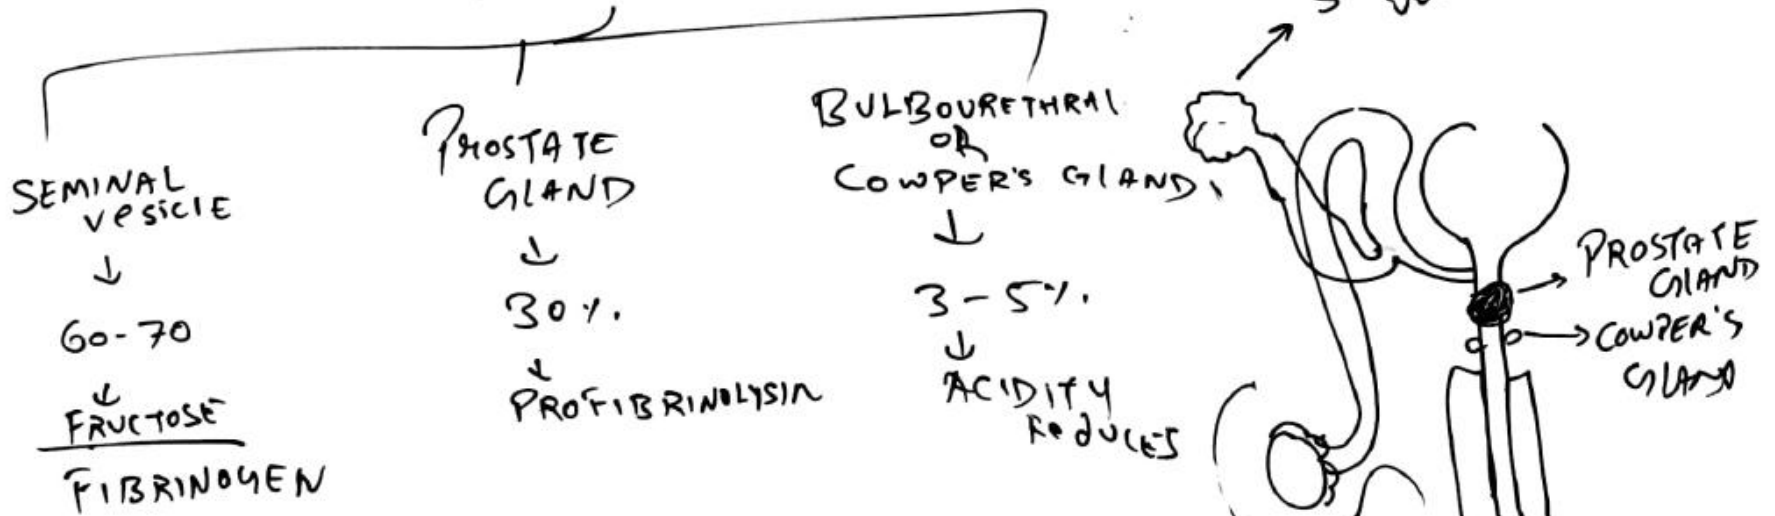 SEMINAL
vesicle
↓
60-70
↓
FRUCTOSE
FIBRINOGEN
PROSTATE
GLAND
↓
30%.
↓
PROFIBRINOLYSIN
BULBOURETHRAL
OR
COWPER'S GLAND
↓
3-5%.
↓
ACIDITY
Reduces
PROSTATE
GLAND
COWPER'S
GLAND